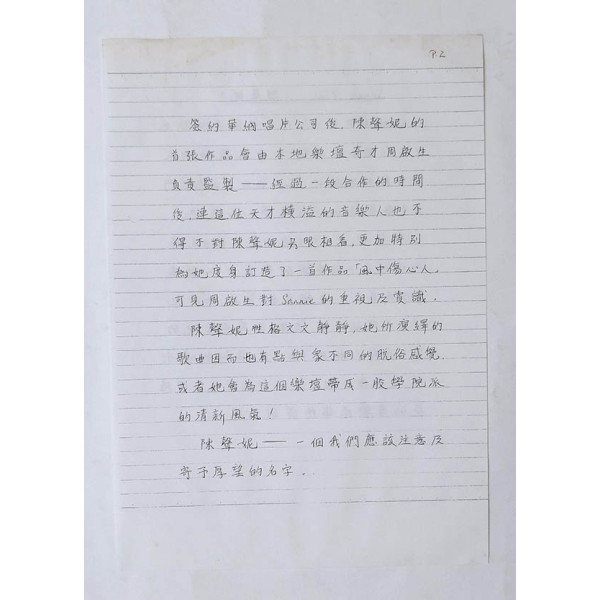 P2
簽約華納唱片公司後,陳聲妮的
首張作品會由本地樂壇奇才周啟生
負責監製——經過一段合作的時間
後,連這位天才橫溢的音樂人也不
得不對陳聲妮另眼相看,更加特別
為她度身訂造了一首作品「風中傷心人」
可見周啟生對 Sannie 的重視及賞識.
陳聲妮性格文文靜靜,她所演繹的
歌曲因而也有點與衆不同的脫俗感覺.
或者她會為這個樂壇帶來一股學院派
的清新風氣!
陳聲妮——一個我們應該注意及
寄予厚望的名字.